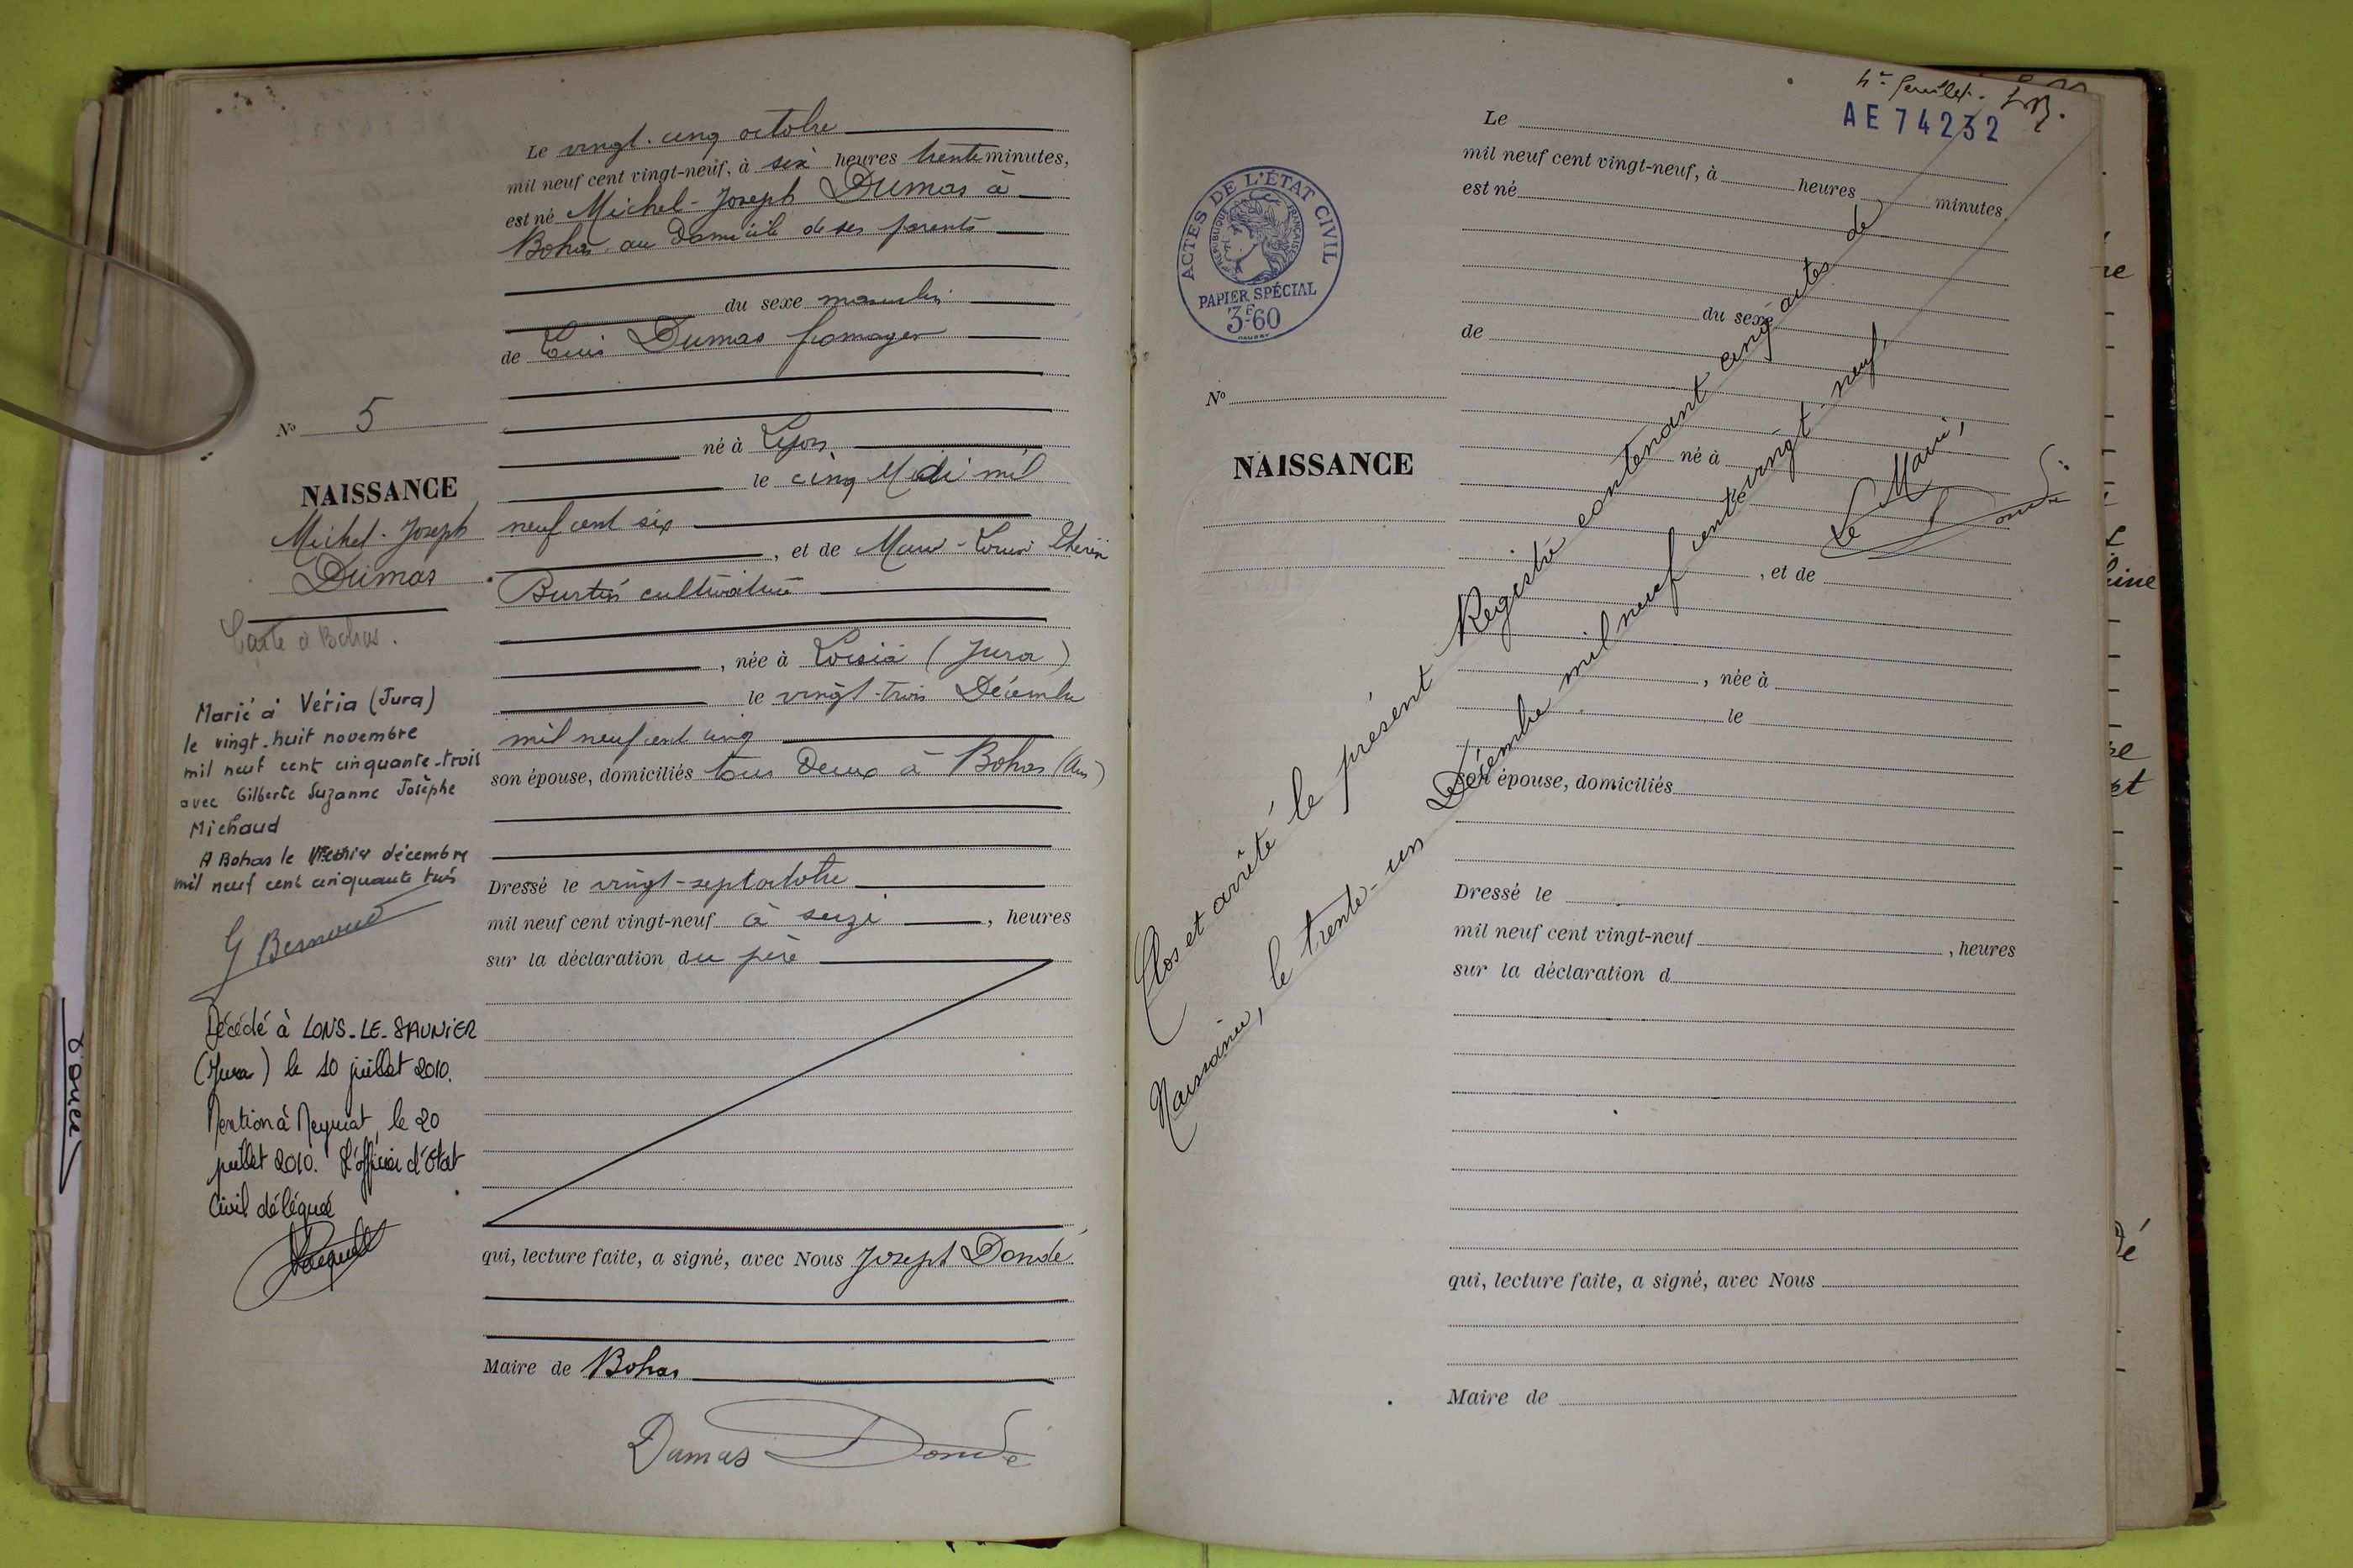 Le vingt-cinq octobre
mil neuf cent vingt-neuf, à six heures trente minutes,
est né Michel-Joseph Dumas à
Bohas au domicile de ses parents
du sexe masculin
de Louis Dumas fromager
né à Lyon
le cinq Mai mil
neuf cent six
, et de Marie-Louise
Burtin cultivatrice
, née à Loisia (Jura)
le vingt-trois Décembre
mil neuf cent cinq
son épouse, domiciliés tous deux à Bohas (Ain)
Dressé le vingt-sept octobre
mil neuf cent vingt-neuf à seize , heures
sur la déclaration du père
qui, lecture faite, a signé, avec Nous Joseph Dondé
Maire de Bohas
Dumas Dondé
No 5
NAISSANCE
Michel-Joseph
Dumas
Carte à Bohas.
Marié à Véria (Jura)
le vingt-huit novembre
mil neuf cent cinquante-trois
avec Gilberte Suzanne Josèphe
Michaud
A Bohas le décembre
mil neuf cent cinquante trois
Décédé à LONS-LE-SAUNIER
(Jura) le 10 juillet 2010.
Mention à Meyriat, le 20
juillet 2010. L'officier d'état
Civil délégué
4e feuillet.
AE 74232
ACTES DE L'ÉTAT CIVIL
RÉPUBLIQUE FRANÇAISE
PAPIER SPÉCIAL
3F.60
No
NAISSANCE
Le
mil neuf cent vingt-neuf, à heures minutes,
est né
du sexe
de
né à
, et de
, née à
le
son épouse, domiciliés
Dressé le
mil neuf cent vingt-neuf , heures
sur la déclaration d
qui, lecture faite, a signé, avec Nous
Maire de
Clos et arrêté le présent Registre contenant cinq actes de
Naissance, le trente-un Décembre mil neuf cent vingt-neuf.
Le Maire,
Dondé